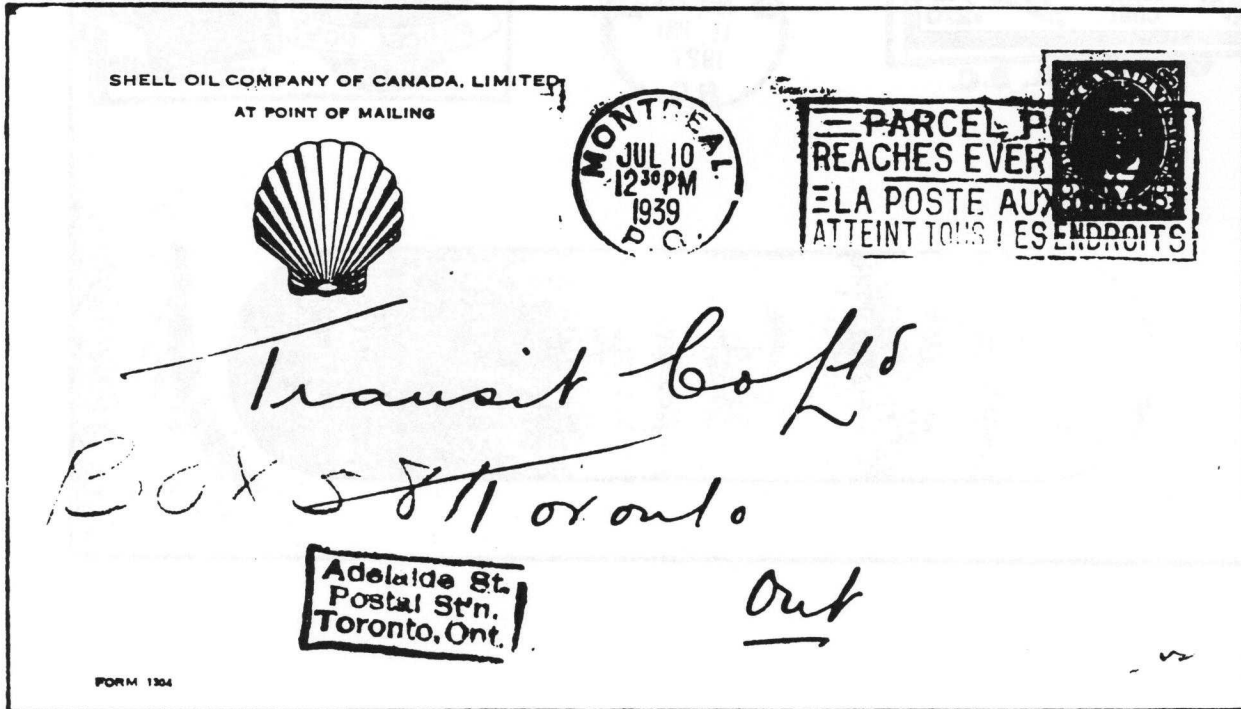 SHELL OIL COMPANY OF CANADA, LIMITED
AT POINT OF MAILING
MONTREAL.
JUL 10
12 30 PM
1939
P.Q.
PARCEL
REACHES EVERY
LA POSTE AUX
ATTEINT TOUS LES ENDROITS
Transit Co Ltd
Box 58 Toronto
Adelaide St.
Postal St'n.
Toronto, Ont.
Ont
FORM 1304